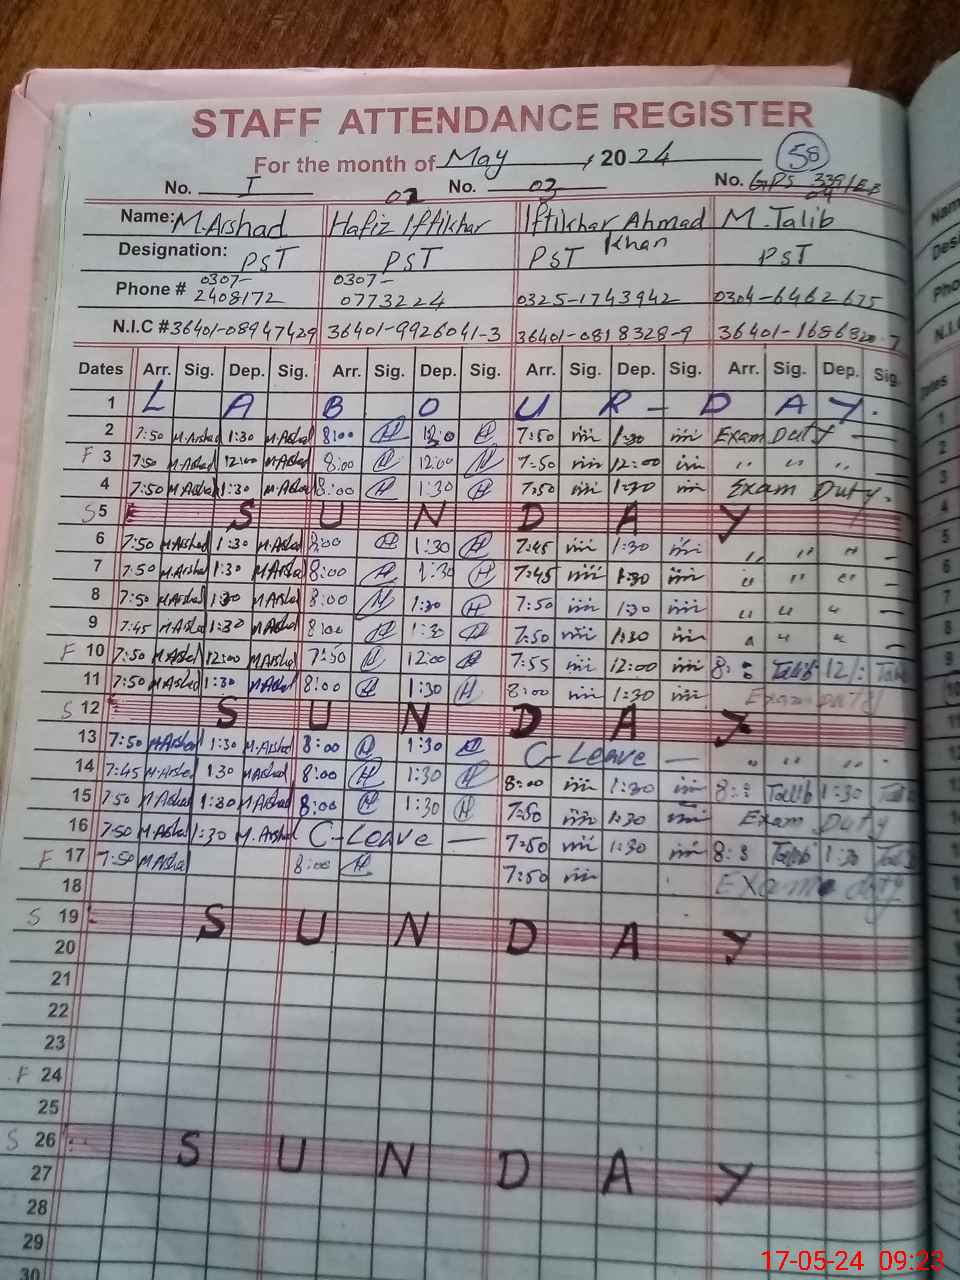 STAFF ATTENDANCE REGISTER
For the month of May , 2024 58
No. I 02 No. 03 No. GPS 339/EB
04
Name: M.Arshad Hafiz Iftikhar Iftikhar Ahmad Khan M.Talib
Designation: PST PST PST PST
Phone # 0307-2408172 0307-0773224 0325-1743942 0304-6462675
N.I.C # 36401-08947429 36401-9926041-3 36401-0818328-9 36401-1686820-7
Dates Arr. Sig. Dep. Sig. Arr. Sig. Dep. Sig. Arr. Sig. Dep. Sig. Arr. Sig. Dep. Sig.
1 LABOUR-DAY.
2 7:50 M.Arshad 1:30 M.Arshad 8:00 H H 7:50 1:30 Exam Duty —
F 3 7:50 M.Arshad 12:00 M.Arshad 8:00 H 12:00 H 7:50 12:00 " " "
4 7:50 M.Arshad 1:30 M.Arshad 8:00 H 1:30 H 7:50 1:30 Exam Duty.
S 5 SUNDAY
6 7:50 M.Arshad 1:30 M.Arshad 8:00 H 1:30 H 7:45 1:30 " " " —
7 7:50 M.Arshad 1:30 M.Arshad 8:00 H 1:30 H 7:45 1:30 " " " —
8 7:50 M.Arshad 1:30 M.Arshad 8:00 H 1:30 H 7:50 1:30 " " " —
9 7:45 M.Arshad 1:30 M.Arshad 8:00 H 1:30 H 7:50 1:30 " " " —
F 10 7:50 M.Arshad 12:00 M.Arshad 7:50 H 12:00 H 7:55 12:00 Talib
11 7:50 M.Arshad 1:30 M.Arshad 8:00 H 1:30 H 8:00 1:30 Exam Duty
S 12 SUNDAY
13 7:50 M.Arshad 1:30 M.Arshad 8:00 H 1:30 H C-Leave — " " " "
14 7:45 M.Arshad 1:30 M.Arshad 8:00 H 1:30 H 8:00 1:30 Talib 1:30
15 7:50 M.Arshad 1:30 M.Arshad 8:00 H 1:30 H 7:50 1:30 Exam Duty
16 7:50 M.Arshad 1:30 M.Arshad C-Leave — 7:50 1:30 Talib 1:30
F 17 7:50 M.Arshad 8:00 H 7:50 Exam duty
18
S 19 SUNDAY
20
21
22
23
F 24
25
S 26 SUNDAY
27
28
29
30
17-05-24 09:23